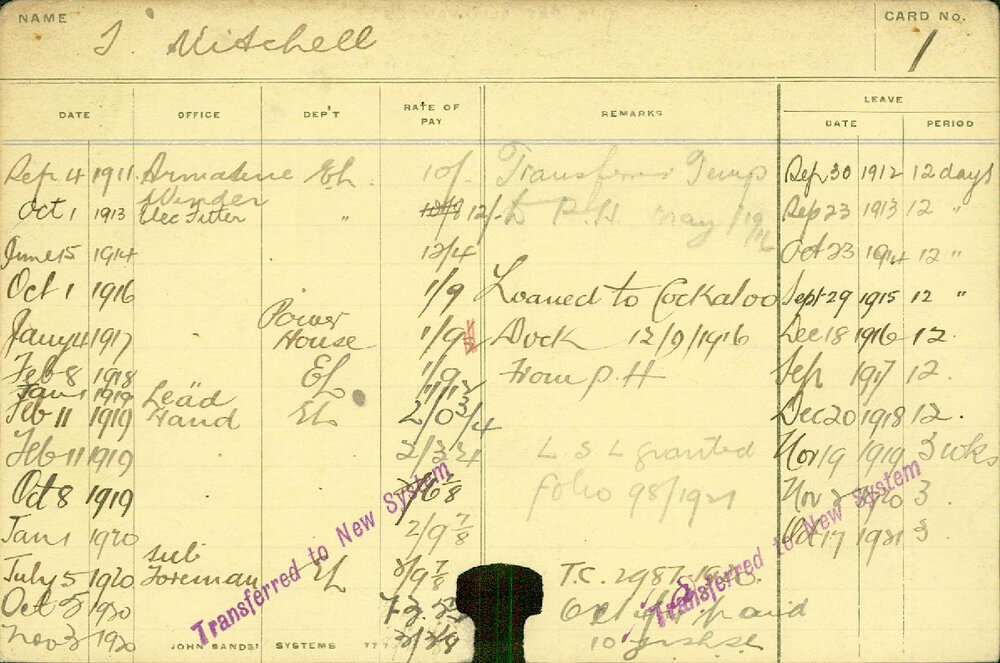 NAME
J. Mitchell
CARD No.
1
DATE OFFICE DEP'T RATE OF PAY REMARKS LEAVE
DATE PERIOD
Sep 4 1911 Armature El. 10/- Transferred Temp Sep 30 1912 12 days
Winder
Oct 1 1913 Elec Fitter " 12/- to P.H May 1916 Sep 23 1913 12 "
June 15 1914 12/4 Oct 23 1914 12 "
Oct 1 1916 1/9 Loaned to Cockatoo Sept 29 1915 12 "
Power
Jany 4 1917 House 1/9 Dock 12/9/1916 Dec 18 1916 12.
Feb 8 1918 EL 1/9 From P.H Sep 1917 12.
Jan 1 1919 Lead
Feb 11 1919 Hand EL 2/0 3/4 Dec 20 1918 12.
Feb 11 1919 L S L granted Nov 19 1919 3 wks
Oct 8 1919 folio 98/1921 Nov 1920 3.
Jan 1 1920 2/9 7/8 Oct 17 1921 3
Sub
July 5 1920 Foreman EL 2/9 7/8 T.C. 2987
Oct 1920 paid
Nov 3 1920
Transferred to New System
Transferred to New System
JOHN SANDS' SYSTEMS